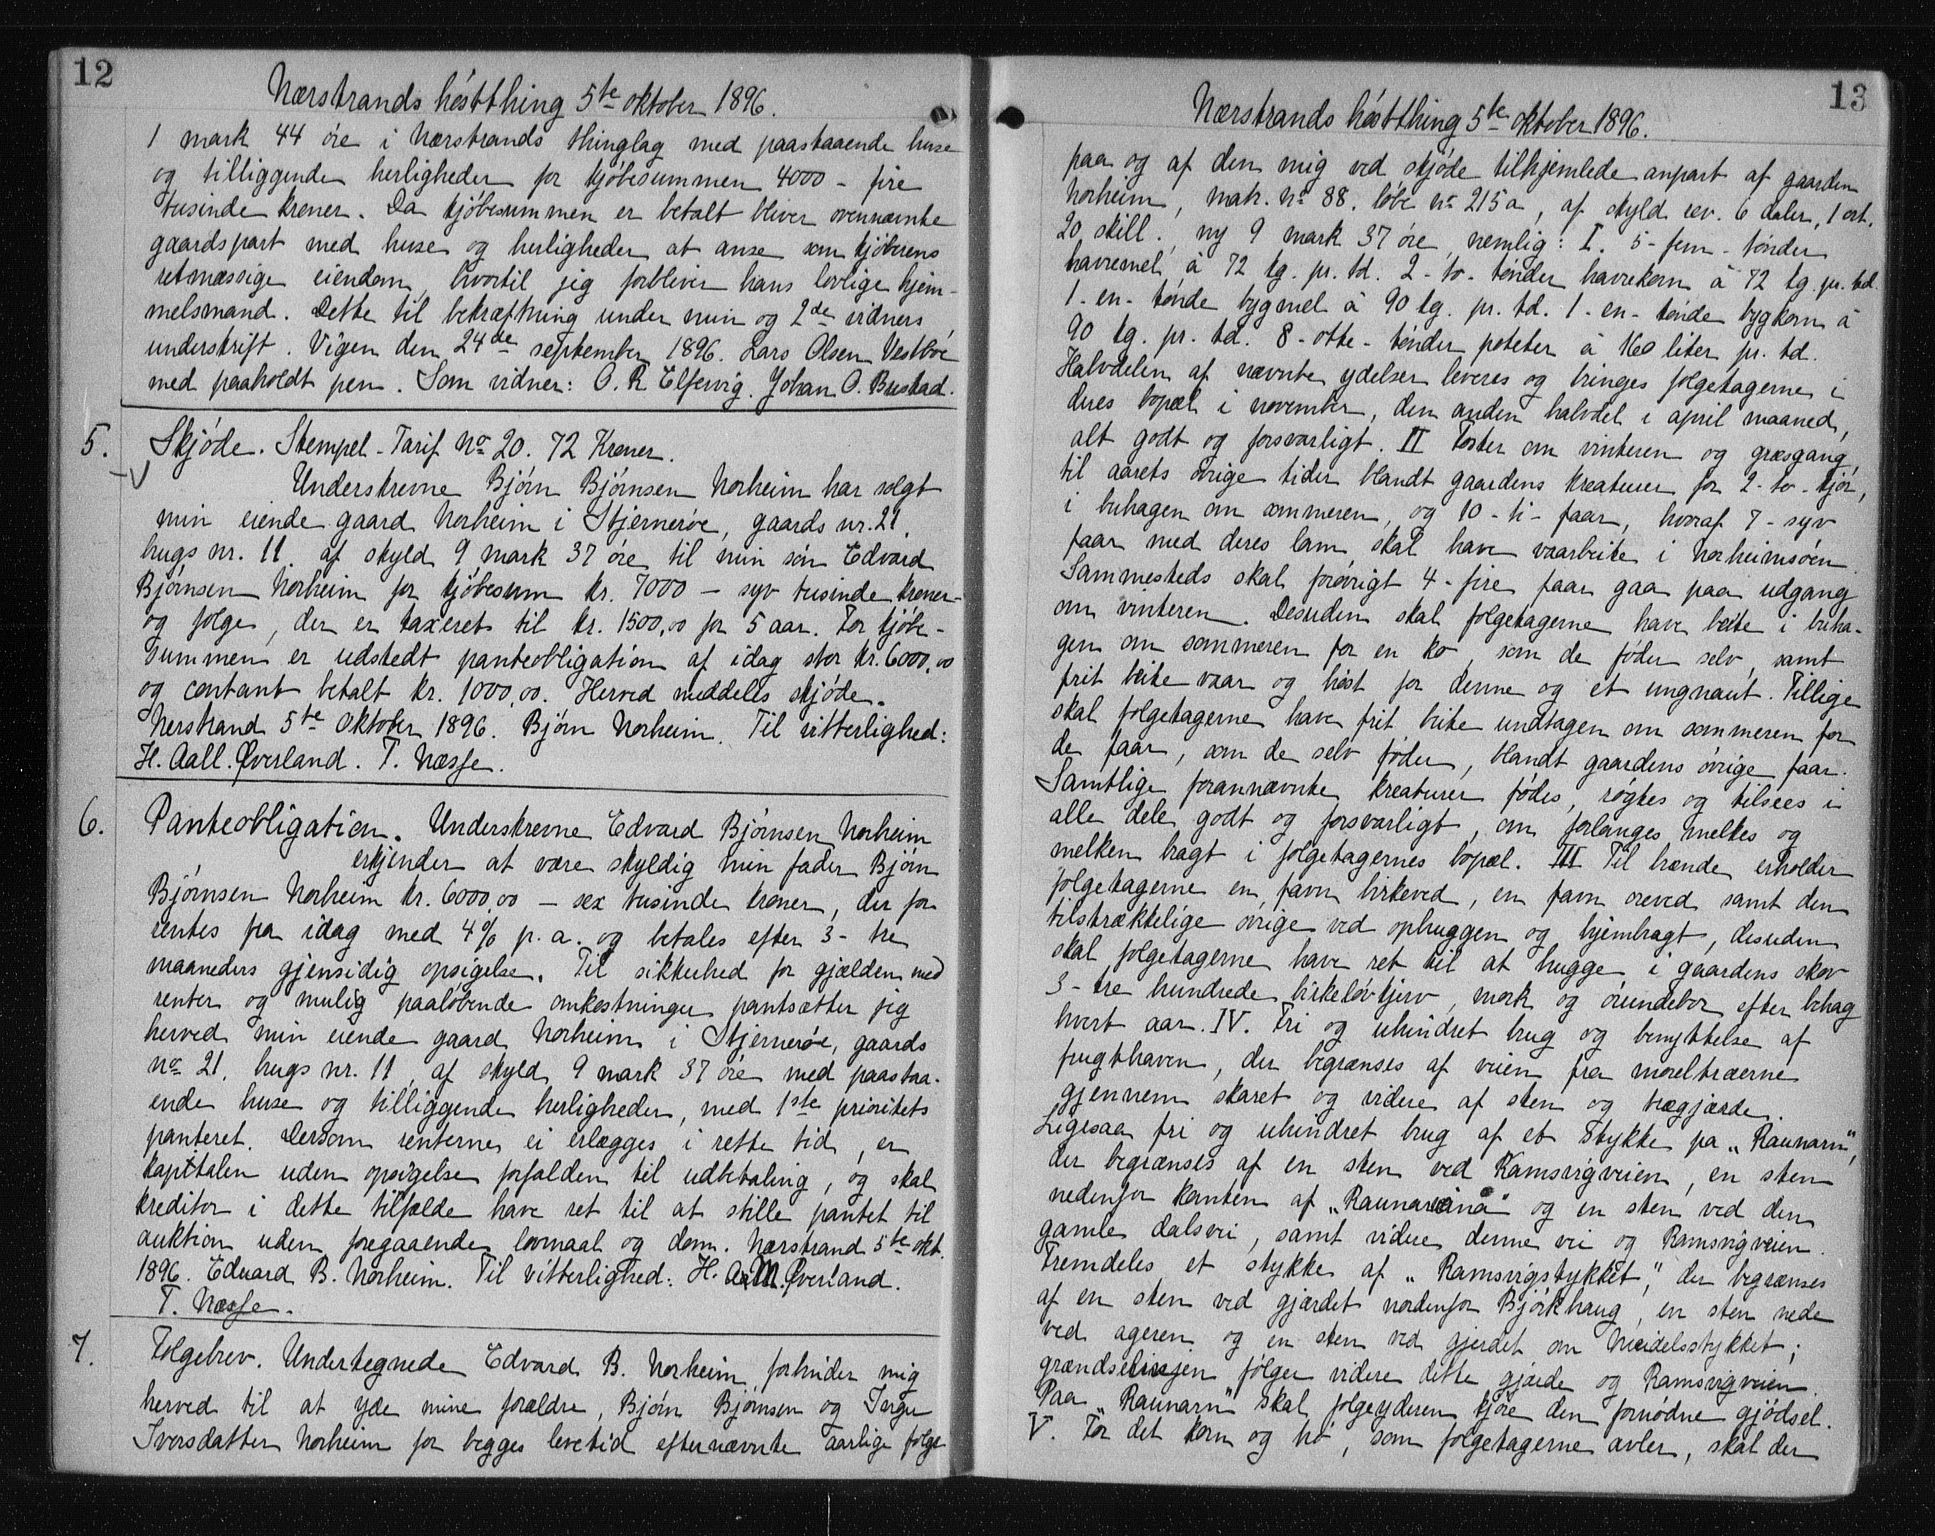 12
Nærstrands høstthing 5te oktober 1896.
1 mark 44 øre i Nærstrands thinglag med paastaaende huse
og tilliggende herligheder for kjøbesummen 4000 - fire
tusinde kroner. Da kjøbesummen er betalt bliver ovennævnte
gaardspart med huse og herligheder at anse som kjøberens
retmæssige eiendom, hvortil jeg forbliver hans lovlige hjem-
melsmand. Dette til bekræftning under min og 2de vidners
underskrift. Vigen den 24de september 1896. Lars Olsen Vestbøe
med paaholdt pen. Som vidner: O. R. Elfevig. Johan O. Bustad.
5. Skjøde. Stempel-Tarif No 20. 72 Kroner.
Underskrevne Bjørn Bjørnsen Norheim har solgt
min eiende gaard Norheim i Stjernerøe, gaards nr. 21.
brugs nr. 11 af skyld 9 mark 37 øre til min søn Edvard
Bjørnsen Norheim for kjøbesum kr. 7000 - syv tusinde kroner -
og følge, der er taxeret til kr. 1500,00 for 5 aar. For kjøbe-
summen er udstedt panteobligation af idag stor kr. 6000,00
og contant betalt kr. 1000,00. Herved meddeles skjøde.
Nerstrand 5te Oktober 1896. Bjørn Norheim. Til vitterlighed:
H. Aall. Øverland. T. Næsse.
6. Panteobligation. Underskrevne Edvard Bjørnsen Norheim
erkjender at være skyldig min fader Bjørn
Bjørnsen Norheim kr. 6000,00 - sex tusinde kroner, der for
rentes fra idag med 4% p. a. og betales efter 3- tre
maaneders gjensidig opsigelse. Til sikkerhed for gjælden med
renter og mulig paaløbende omkostninger pantsætter jeg
herved min eiende gaard Norheim i Stjernerøe, gaards
no 21. brugs nr. 11 af skyld 9 mark 37 øre med paastaa-
ende huse og tilliggende herligheder, med 1ste prioritets
panteret. Dersom renterne ei erlægges i rette tid, er
kapitalen uden opsigelse forfalden til udbetaling, og skal
kreditor i dette tilfælde have ret til at stille pantet til
auktion uden foregaaende lovmaal og dom. Nærstrand 5te okt.
1896. Edvard B. Norheim. Til vitterlighed: H. Aall. Øverland.
T. Næsse.
7. Følgebrev. Undertegnede Edvard B. Norheim forbinder mig
herved til at yde mine forældre, Bjørn Bjørnsen og Inger
Iversdatter Norheim for begges levetid efternævnte aarlige følge
13
Nærstrands høstthing 5te oktober 1896.
paa og af den mig ved skjøde tilhjemlede anpart af gaarden
Norheim, matr. no 88. løbe no 215a, af skyld rev. 6 daler, 1 ort.
20 skill., ny 9 mark 37 øre, nemlig: I. 5- fem - tønder
havremel à 72 kg. pr. td. 2- to- tønder havrekorn à 72 kg. pr. td.
1- en- tønde bygmel à 90 kg. pr. td. 1- en- tønde bygkorn à
90 kg. pr. td. 8- otte- tønder poteter à 160 liter pr. td.
Halvdelen af nævnte ydelser leveres og bringes følgetagerne i
deres bopæl i november, den anden halvdel i april maaned,
alt godt og forsvarligt. II Foster om vinteren og græsgang
til aarets øvrige tider blandt gaardens kreaturer for 2- to- kjør,
i buhagen om sommeren, og 10- ti- faar, hvoraf 7- syv
faar med deres lam skal have vaarbeite i Norheimsøen.
Sammesteds skal forøvrigt 4- fire faar gaa paa udgang
om vinteren. Desuden skal følgetagerne have beite i buha-
gen om sommeren for en ko, som de føder selv, samt
frit beite vaar og høst for denne og et ungnaut. Tillige
skal følgetagerne have frit beite undtagen om sommeren for
de faar, som de selv føder, blandt gaardens øvrige faar.
Samtlige forannævnte kreaturer fødes, røgtes og tilsees i
alle dele godt og forsvarligt, om forlanges melkes og
melken bragt i følgetagernes bopæl. III Til brænde erholder
følgetagerne en favn birkeved, en favn oreved samt den
tilstrækkelige øvrige ved ophuggen og hjembragt, desuden
skal følgetagerne have ret til at hugge i gaardens skov
3- tre hundrede birkeløvkjerv, mork og efter behag
hvert aar. IV. Fri og uhindret brug og benyttelse af
frugthaven, der begrænses af veien fra moreltræerne
gjennem skaret og videre af sten og trægjærde.
Ligesaa fri og uhindret brug af et stykke pa „Raunarn“,
der begrænses af en sten ved Ramsvigveien, en sten
nedenfor kanten af og en sten ved den
gamle dalsvei, samt videre denne vei og Ramsvigveien.
Fremdeles et stykke af „Ramsvigstykket“, der begrænses
af en sten ved gjærdet nordenfor Bjørkhaug, en sten nede
ved ageren og en sten ved gjerdet om Meidelsstykket;
grændselinjen følger videre dette gjærde og Ramsvigveien.
Paa „Raunarn“ skal følgeyderen kjøre den fornødne gjødsel.
V. For det korn og hø, som følgetagerne avler, skal der